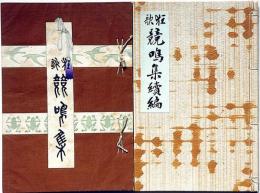 狂歌
競鳴集
狂歌
競鳴集續編